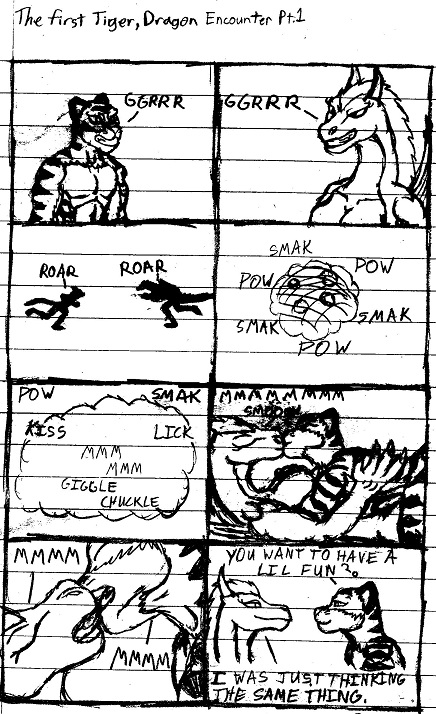 The first Tiger, Dragon Encounter Pt.1
GGRRR
GGRRR
ROAR
ROAR
SMAK
POW
POW
SMAK
SMAK
POW
POW
SMAK
KISS
LICK
MMM
MMM
GIGGLE
CHUCKLE
MMMMMMM
MMMM
MMMM
YOU WANT TO HAVE A
LIL FUN?
I WAS JUST THINKING
THE SAME THING.